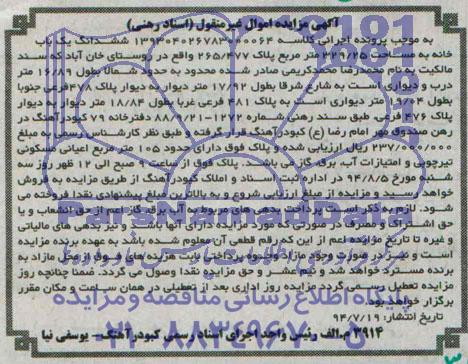 آگهی مزایده اموال غیرمنقول (اسناد رهنی)
به موجب پرونده اجرائی کلاسه ۱۳۹۳۰۴۰۲۶۷۸۳۰۰۰۰۶۴ ششدانگ یک باب
خانه به مساحت ۳۲۹/۲۵ متر مربع پلاک ۲۶۵/۴۷۷ واقع در روستای خان آباد که سند
مالکیت به نام محمدرضا محمدکریمی صادر شده محدود به حدود شمالا بطول ۱۶/۸۹ متر
درب و دیواری است به شارع شرقا بطول ۱۷/۹۲ متر دیوار به دیوار پلاک ۴۷۸ فرعی جنوبا
بطول ۱۹/۰۴ متر دیواری است به پلاک ۴۸۱ فرعی غربا بطول ۱۸/۸۴ متر دیوار به دیوار
پلاک ۴۷۶ فرعی. طبق سند رهنی شماره ۱۲۷۲-۸۸/۷/۲۱ دفترخانه ۷۹ کبودرآهنگ در
رهن صندوق مهر امام رضا (ع) کبودرآهنگ قرار گرفته و طبق نظر کارشناس رسمی به مبلغ
۲۳۷/۰۰۰/۰۰۰ ریال ارزیابی شده و پلاک فوق دارای حدود ۱۰۵ متر مربع اعیانی مسکونی
تیرچوبی و امتیازات آب، برق، گاز می باشد. پلاک فوق از ساعت ۹ صبح الی ۱۲ ظهر روز سه
شنبه مورخ ۹۴/۸/۵ در اداره ثبت اسناد و املاک کبودرآهنگ از طریق مزایده به فروش
خواهد رسید و مزایده از مبلغ ارزیابی شروع و به بالاترین مبلغ پیشنهادی نقدا فروخته می
شود. لازم به ذکر است پرداخت بدهی های مربوط به آب، برق، گاز اعم از حق انشعاب و یا
حق اشتراک و مصرف در صورتی که مورد مزایده دارای آنها باشد و نیز بدهی های مالیاتی
و غیره تا تاریخ مزایده اعم از این که رقم قطعی آن معلوم شده باشد به عهده برنده مزایده
است و نیز در صورت وجود مازاد وجوه پرداختی بابت هزینه های فوق از محل مازاد به
برنده مسترد خواهد شد و نیم عشر و حق مزایده نقدا وصول می گردد. ضمنا چنانچه روز
مزایده تعطیل رسمی گردد مزایده روز اداری بعد از تعطیلی در همان ساعت و مکان مقرر
برگزار خواهد بود.
تاریخ انتشار: ۹۴/۷/۱۹
۳۹۱۴ م.الف رئیس واحد اجرای اسناد رسمی کبودرآهنگ – یوسفی نیا
ParsNamadData
پایگاه اطلاع رسانی مناقصه و مزایده
۰۲۱-۸۸۳۴۹۶۷۰